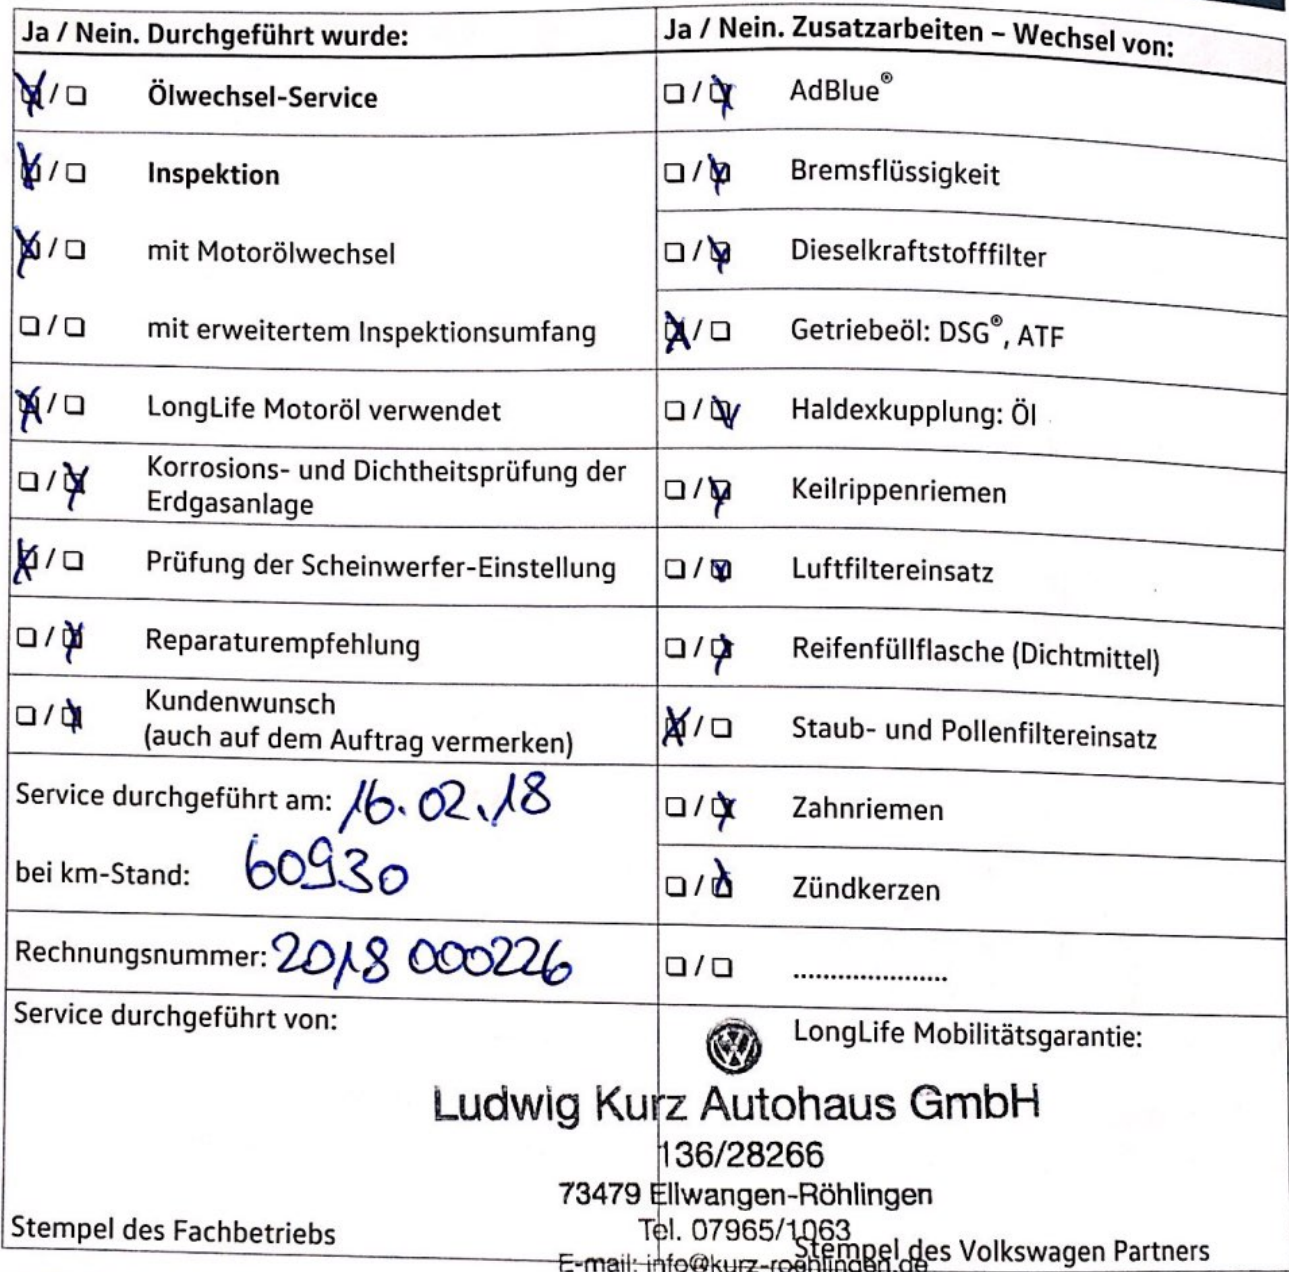 Ja / Nein. Durchgeführt wurde:
Ölwechsel-Service
Inspektion
mit Motorölwechsel
mit erweitertem Inspektionsumfang
LongLife Motoröl verwendet
Korrosions- und Dichtheitsprüfung der
Erdgasanlage
Prüfung der Scheinwerfer-Einstellung
Reparaturempfehlung
Kundenwunsch
(auch auf dem Auftrag vermerken)
Service durchgeführt am: 16.02.18
bei km-Stand: 60930
Rechnungsnummer: 2018 000226
Service durchgeführt von:
Stempel des Fachbetriebs
Ja / Nein. Zusatzarbeiten – Wechsel von:
AdBlue®
Bremsflüssigkeit
Dieselkraftstofffilter
Getriebeöl: DSG®, ATF
Haldexkupplung: Öl
Keilrippenriemen
Luftfiltereinsatz
Reifenfüllflasche (Dichtmittel)
Staub- und Pollenfiltereinsatz
Zahnriemen
Zündkerzen
.....................
LongLife Mobilitätsgarantie:
Ludwig Kurz Autohaus GmbH
136/28266
73479 Ellwangen-Röhlingen
Tel. 07965/1063
E-mail: info@kurz-roehlingen.de
Stempel des Volkswagen Partners